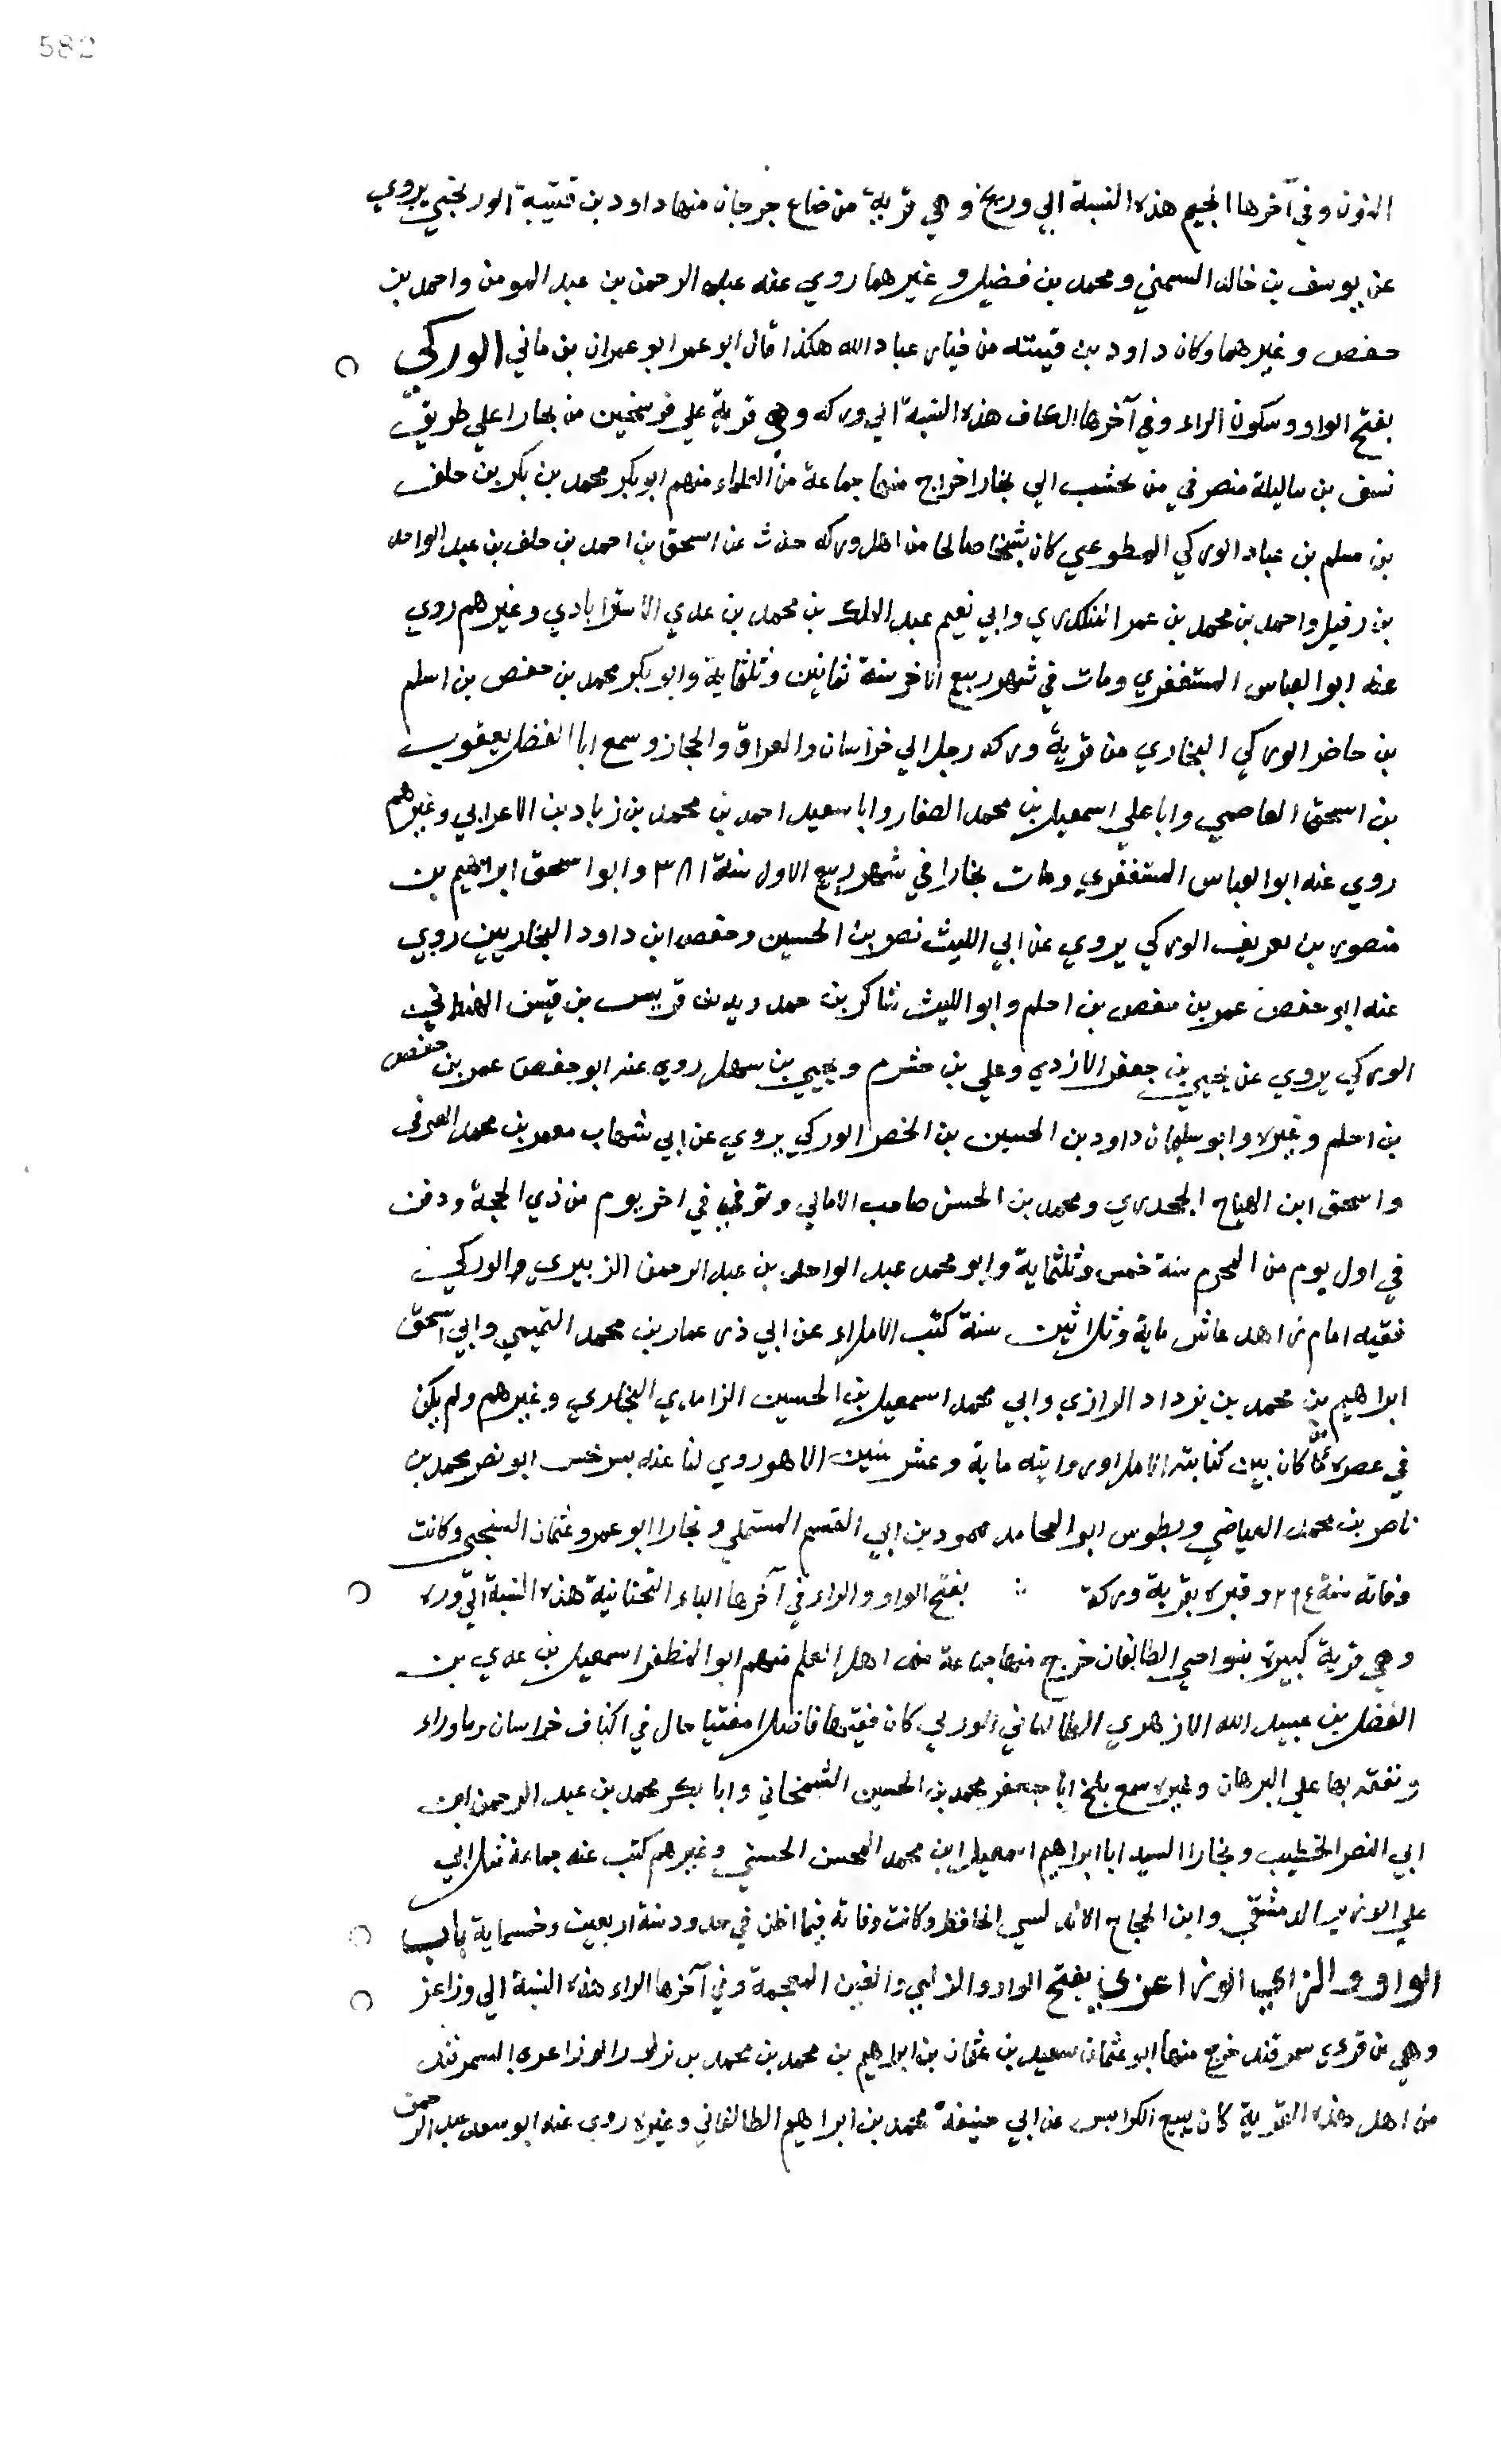 582
النون وفي آخرها الجيم هذه النسبة الي وريخ و هي قرية من ضاع جرجان منها داود بن قتيبة الوريخي يروي
عن يوسف بن خالد السمني ومحمد بن فضيل و غيرهما روي عنه عبد الرحمن بن عبد المومن واحمد بن
حفص وغيرهما وكان داود بن قتيبته من خيار عباد الله هكذا قال ابو عمر ابو عمران بن هاني الوركي
بفتح الواو وسكون الراء وفي آخرها الكاف هذه النسبة الي وركه وهي قرية علي فرسخين من بخارا علي طريق
نسف بن ساليلة منصرفي من نخشب الي بخارا خراج منها جماعة من العلماء منهم ابو بكر محمد بن بكر بن خلف
بن مسلم بن عباد الوركي المطوعي كان شيخا صالحا من اهل وركه حدث عن اسحق بن احمد بن خلف بن عبد الواحد
بن رفيل واحمد بن محمد بن عمر المنكدري وابي نعيم عبد الملك بن محمد بن عدي الاسترابادي وغيرهم روي
عنه ابو العباس المستغفري ومات في شهر ربيع الاخر سنة ثمانين وثلثماية وابو بكر محمد بن حفص بن اسلم
بن حاضر الوركي البخاري من قرية وركه رحل الي خراسان والعراق والحجاز وسمع ابا الفضل يعقوب
بن اسحق العاصمي وابا علي اسمعيل بن محمد الصفار وابا سعيد احمد بن محمد بن زياد بن الاعرابي وغيرهم
روي عنه ابو العباس المستغفري ومات بخارا في شهر ربيع الاول سنة ٣٨١ وابو اسحق ابراهيم بن
منصور بن تعريف الوركي يروي عن ابي الليث نصر بن الحسين وحفص ابن داود البخاريين روي
عنه ابو حفص عمر بن حفص بن احلم وابو الليث شاكر بن حمدويه بن قريس بن قيس
الوركي يروي عن يحيي بن جعفر الازدي وعلي بن خشرم ويحيي بن سهل روي عنه ابو حفص عمر بن حفص
بن احلم وغيره وابو سليمان داود بن الحسين بن الخضر الوركي يروي عن ابي شهاب معمر بن محمد العوفي
واسحق ابن الهياج الجحدري ومحمد بن الحسن صاحب الامالي وتوفي في اخر يوم من ذي الحجة ودفن
في اول يوم من المحرم سنة خمس وثلثماية وابو محمد عبد الواحد بن عبد الرحمن الزبيري والوركي
فقيه امام زاهد عاش ماية وثلاثين سنة كتب الاملاء عن ابي ذر عمار بن محمد التميمي وابي اسحق
ابراهيم بن محمد بن يزداد الرازي وابي محمد اسمعيل بن الحسين الزاهدي البخاري وغيرهم ولم يكن
في عصره من كان بين كتابته الاملا وروايته ماية وعشر سنين الا هو روي لنا عنه بسرخس ابو نصر محمد بن
ناصر بن محمد العياضي وبطوس ابو المحامد محمود بن ابي القسم المستملي وبخارا ابو عمرو عثمان السنجي وكانت
وفاته سنة وقبره بقرية وركة بفتح الواو والراء في آخرها الياء التحتانية هذه النسبة الي وره
وهي قرية كبيرة بنواحي الطالقان خرج منها جماعة من اهل العلم منهم ابو المظفر اسمعيل بن عدي بن
الفضل بن عبيد الله الازهري الطالقاني الوري كان فقيها فاضلا مفتيا حال في اكناف خراسان وماوراء
وتفقه بها علي البرهان وغيره سمع ببلخ ابا جعفر محمد بن الحسين الشمخاني وابا بكر محمد بن عبد الرحمن ابن
ابي النصر الخطيب وبخارا السيد ابا ابراهيم اسمعيل ابن محمد المحسن الحسني وغيرهم كتب عنه جماعة مثل ابي
علي الوزير الدمشقي وابن الحجاج الاندلسي الحافظ وكانت وفاته فيما اظن في حدود سنة اربعين وخمسماية باب
الواو والزاي الوزاغري بفتح الواو والزاي والغين المعجمة وفي آخرها الراء هذه النسبة الي وزاغر
وهي من قري سمرقند خرج منها ابو عثمان سعيد بن عثمان بن ابراهيم بن محمد بن محمد بن السمرقندي
من اهل هذه القرية كان يبيع الكرابيس عن ابي حنيفة محمد بن ابراهيم الطالقاني وغيره روي عنه ابو سعد عبد الرحمن